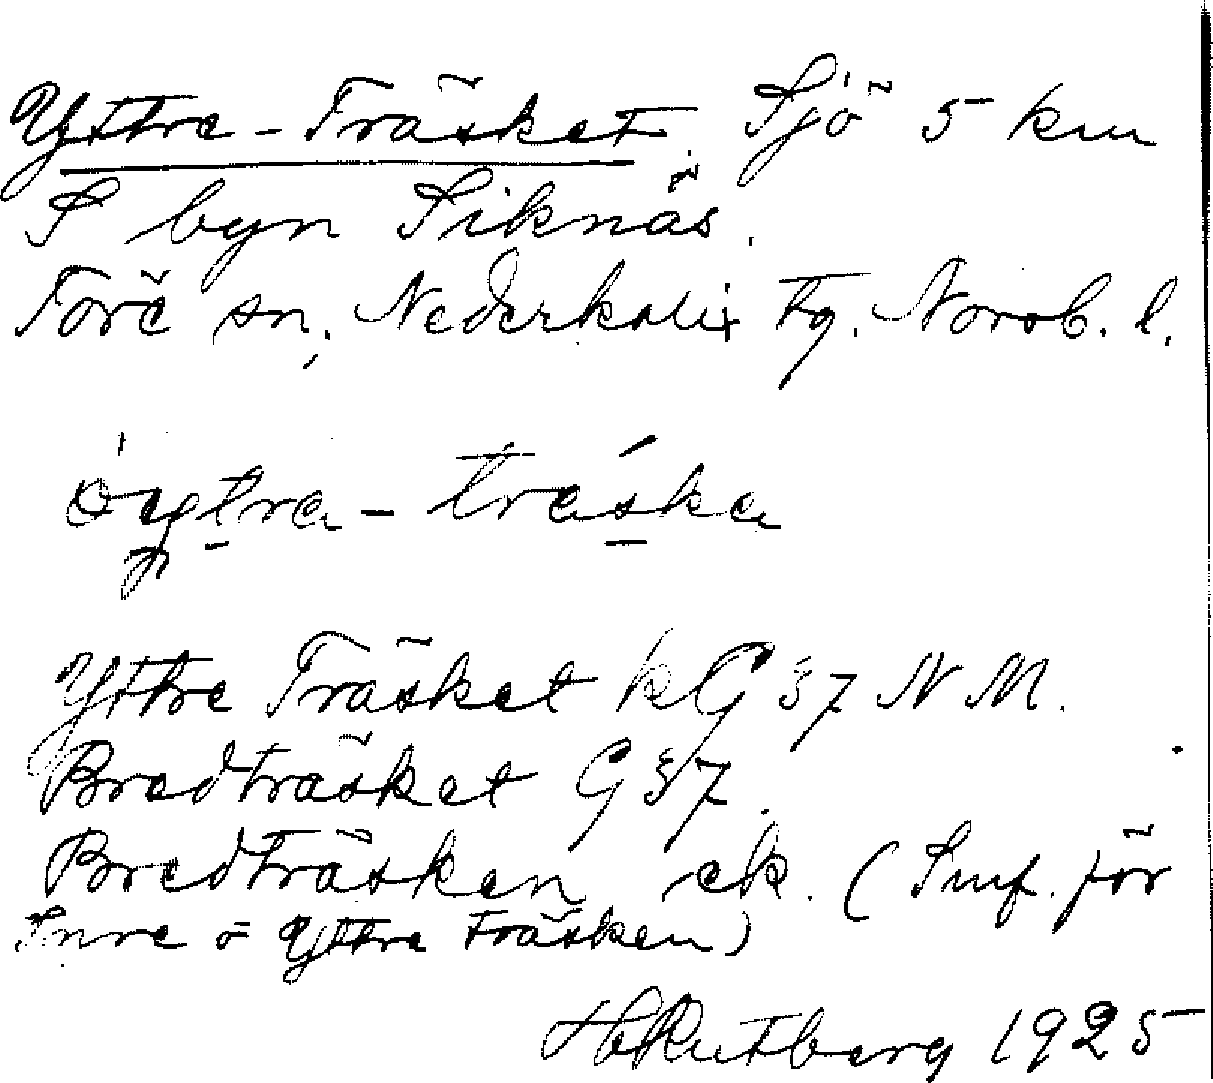 Yttre-Träsket. Sjö 5 km
S byn Siknäs.
Töre sn, Nederkalix tg. Norrb. l.
träska
Yttre Träsket kG 37 N M.
Bredträsket G 37.
Bredträsken ek. (Smf. för
Inre o Yttre Träsken)
H Rutberg 1925